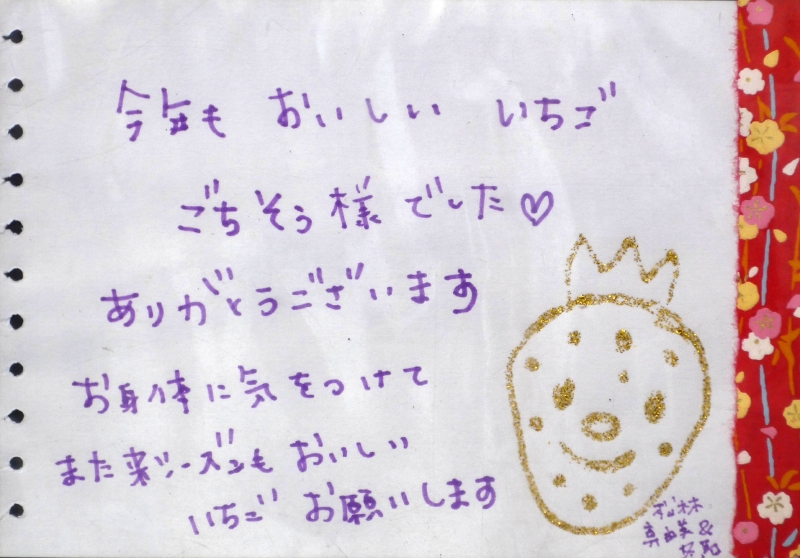 今年も おいしい いちご
ごちそう様でした♡
ありがとうございます
お身体に気をつけて
また来シーズンもおいしい
いちご お願いします
松林
真由美&